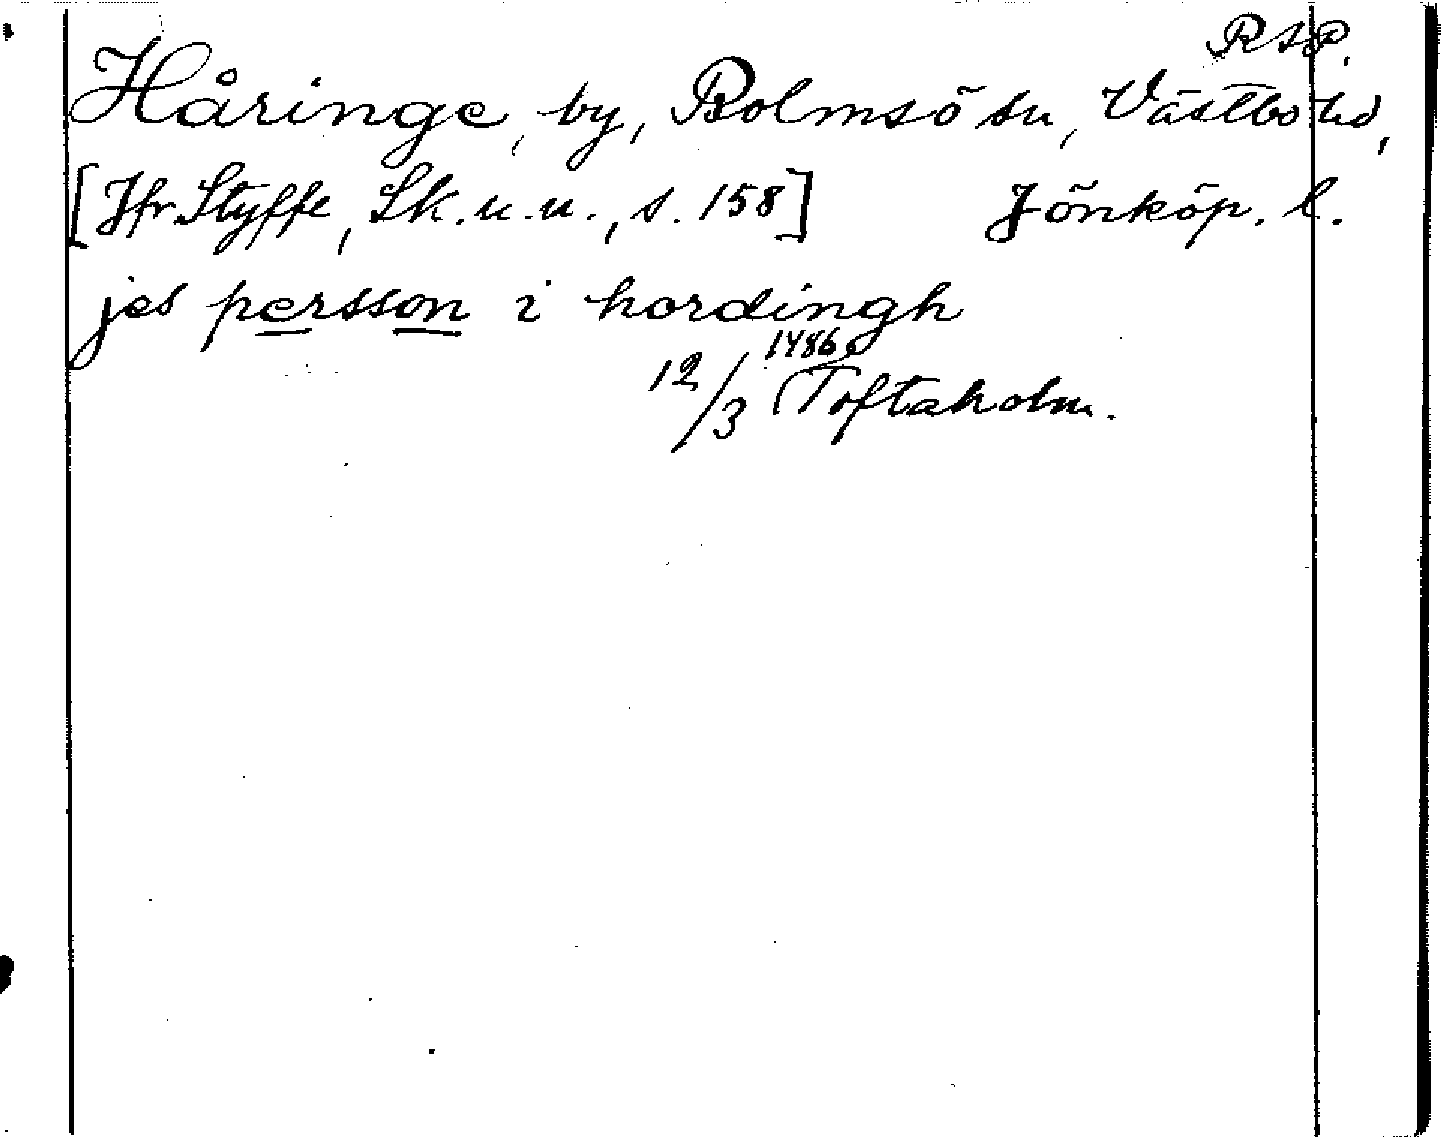 RAP.
Håringe, by, Bolmsö sn, Västbo hd,
[Jfr. Styffe, Sk. u. u., s. 158] Jönköp. l.
jes persson i hordingh
12/3 1486, Toftaholm.